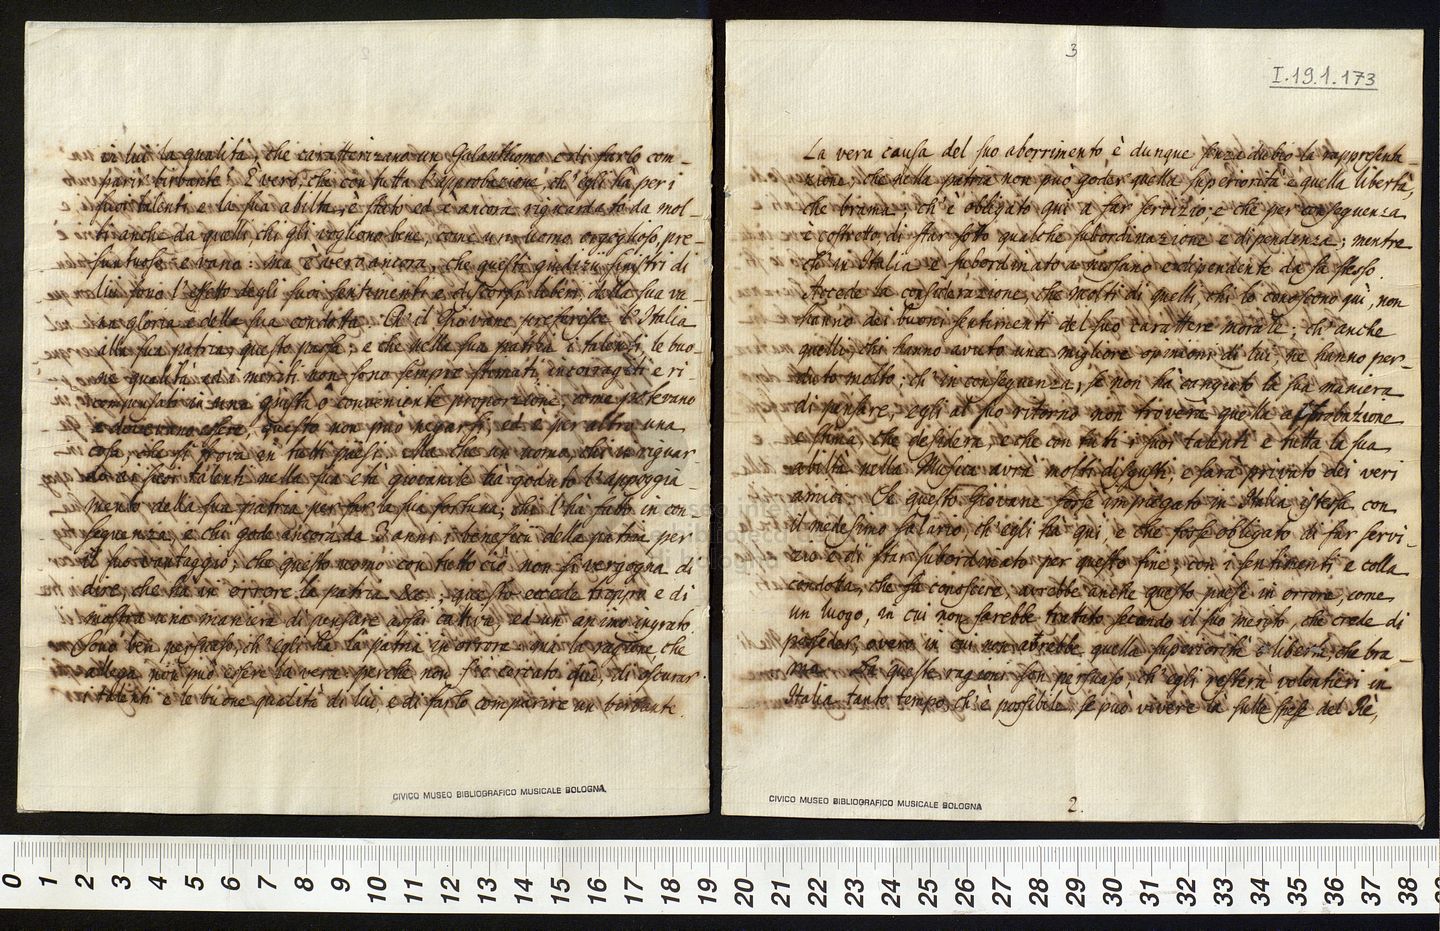 in lui la qualità, che caratterizano un Galanthuomo e di farlo com-
parir birbante. È vero, che con tutta l'approbazione, ch'egli hà per i
suoi talenti e la sua abiltà, è stato ed è ancora riguardato da mol-
ti anche da quelli, chi gli vogliono bene, come un uomo orgoglioso, pre-
suntuoso e vano: ma è vero ancora, che questi giudizii sinistri di
lui sono l'effetto degli suoi sentimenti e discorsi liberi, della sua va-
na gloria e della sua condotta. Ch'il Giovane preferisce l'Italia
alla sua patria, questo passa; e che nella sua patria i talenti, le buo-
ne qualità ed i meriti non sono sempre stimati, incorragiti e ri-
compensati in una giusta o conveniente proporzione, come potevano
e dovevano essere, questo non può negarsi, ed è per altro una
cosa, che si trova in tutti paesi. Ma che un uomo, chi in riguar-
do ai suoi talenti nella sua età giovanile hà goduto l'appoggia-
mento della sua patria per far la sua fortuna; chi l'hà fatto in con-
sequenza, e chi gode ancora da 3 anni i beneficii della patria per
il suo vantaggio; che questo uomo con tutto ciò non si vergogna di
dire, che hà in orrore la patria &c.; questo eccede troppo e di
mostra una maniera di pensare assai cattiva, ed un animo ingrato.
Sono ben persuaso, ch'egli hà la patria in orrore; mà la ragione, che
allega, non può essere la vera: perche non si è cercato quì, di oscurar
i talenti e le buone qualità di lui, e di farlo comparire un birbante.
3
I.19.1.173
La vera causa del suo aborrimento è dunque senza dubio la rappresenta-
zione, che nella patria non può goder quella superiorità e quella libertà,
che brama; ch'è obligato quì a far servizio e che per consequenza
è costreto, di star sotto qualche subordinazione e dipendenza; mentre
ch'in Italia è subordinato a nessuno e dipendente da sa stesso.
Accede la considerazione, che molti di quelli, chi lo conoscono quì, non
hanno dei buoni sentimenti del suo carattere morale; ch'anche
quelli, chi hanno avuto una migliore opinion di lui, ne hanno per-
duto molto; ch'in consequenza, se non hà cangiato la sua maniera
di pensare, egli al suo ritorno non troverà quella approbazione
e stima, che desidera, e che con tutti i suoi talenti e tutta la sua
abiltà nella Musica avrà molti disgusti, e sarà privato dei veri
amici. Se questo Giovane fosse impiegato in Italia istessa con
il medesimo salario, ch'egli hà quì, e che fosse obligato di far servi-
zio e di star subordinato per questo fine; con i sentimenti e colla
condotta, che fà conoscere, avrebbe anche questo paese in orrore, come
un luogo, in cui non sarebbe trattato secondo il suo merito, che crede di
posseder, overo in cui non avrebbe quella superiorità e libertà, che bra-
ma. Da queste ragioni son persuaso, ch'egli resterà volontieri in
Italia tanto tempo, ch'è possibile se può vivere là sulle spese del Rè,
2.
CIVICO MUSEO BIBLIOGRAFICO MUSICALE BOLOGNA
CIVICO MUSEO BIBLIOGRAFICO MUSICALE BOLOGNA
0 1 2 3 4 5 6 7 8 9 10 11 12 13 14 15 16 17 18 19 20 21 22 23 24 25 26 27 28 29 30 31 32 33 34 35 36 37 38